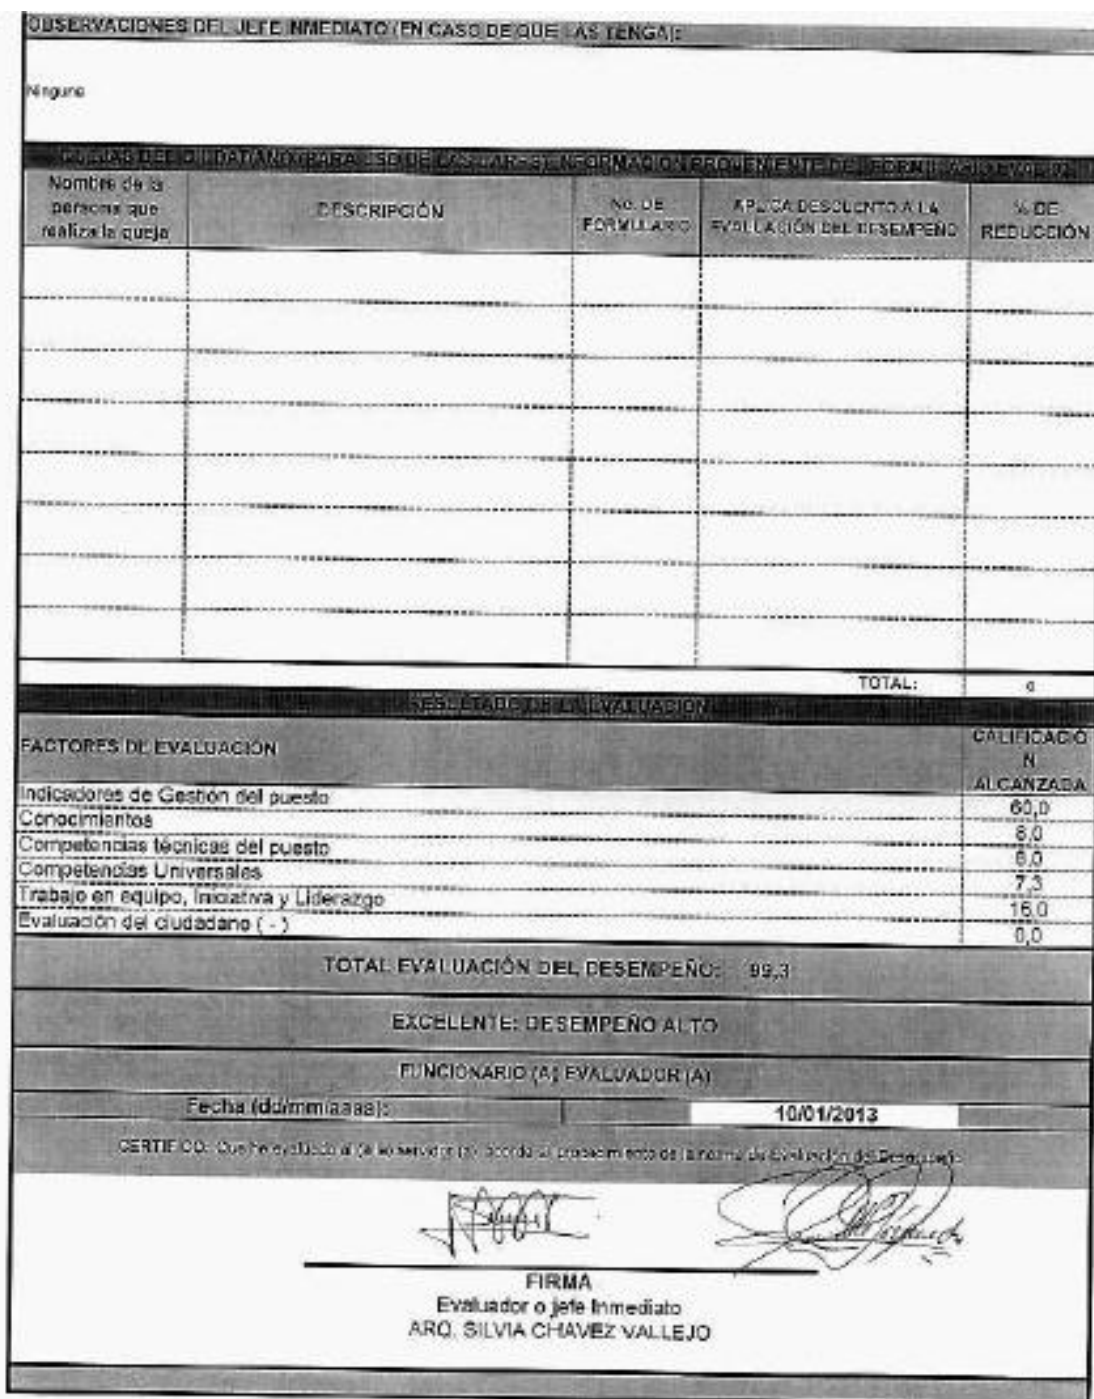 OBSERVACIONES DEL JEFE INMEDIATO (EN CASO DE QUE LAS TENGA):
Ninguna
QUEJAS DEL CIUDADANO (PARA USO DE LAS UARHS) INFORMACIÓN PROVENIENTE DEL FORMULARIO EVAL-02
Nombre de la persona que realiza la queja
DESCRIPCIÓN
No. DE FORMULARIO
APLICA DESCUENTO A LA EVALUACIÓN DEL DESEMPEÑO
% DE REDUCCIÓN
TOTAL: 0
RESULTADO DE LA EVALUACIÓN
FACTORES DE EVALUACIÓN
CALIFICACIÓ
N
ALCANZADA
Indicadores de Gestión del puesto 60,0
Conocimientos 8,0
Competencias técnicas del puesto 8,0
Competencias Universales 7,3
Trabajo en equipo, Iniciativa y Liderazgo 16,0
Evaluación del ciudadano ( - ) 0,0
TOTAL EVALUACIÓN DEL DESEMPEÑO: 99,3
EXCELENTE: DESEMPEÑO ALTO
FUNCIONARIO (A) EVALUADOR (A)
Fecha (dd/mm/aaaa): 10/01/2013
CERTIFICO: Que he evaluado al (a la) servidor (a) acorde al procedimiento de la norma de Evaluación del Desempeño
FIRMA
Evaluador o jefe Inmediato
ARQ. SILVIA CHAVEZ VALLEJO